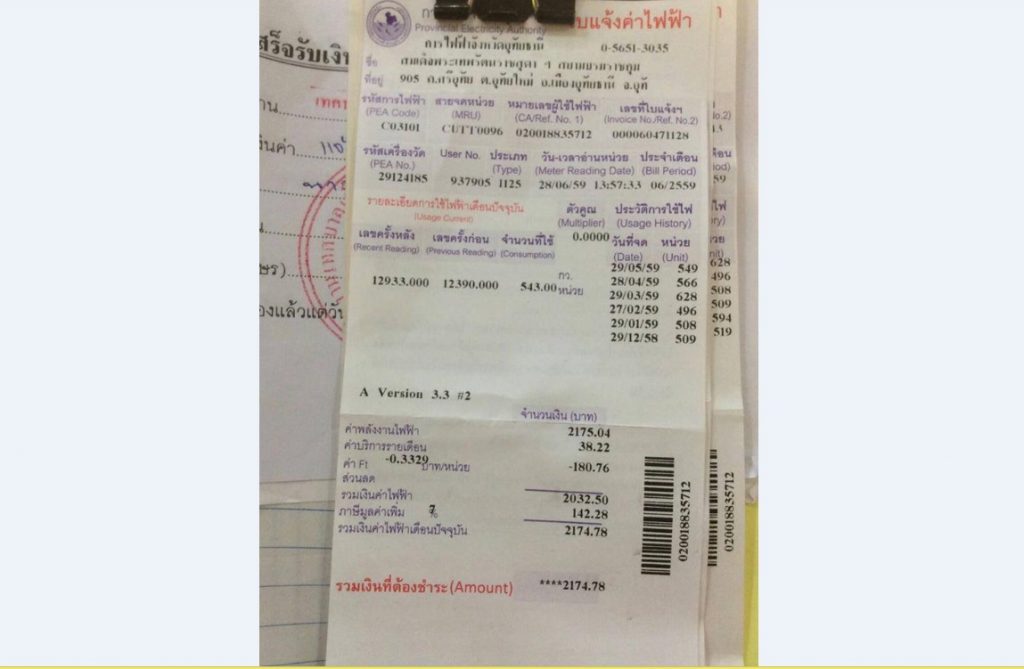 ใบแจ้งค่าไฟฟ้า
Provincial Electricity Authority
การไฟฟ้าจังหวัดอุทัยธานี 0-5651-3035
ชื่อ สมเด็จพระเทพรัตนราชสุดา ฯ สยามบรมราชกุม
ที่อยู่ 905 ถ.ศรีอุทัย ต.อุทัยใหม่ อ.เมืองอุทัยธานี จ.อุทั
รหัสการไฟฟ้า สายจดหน่วย หมายเลขผู้ใช้ไฟฟ้า เลขที่ใบแจ้งฯ
(PEA Code) (MRU) (CA/Ref. No. 1) (Invoice No./Ref. No.2)
C03101 CUTT0096 020018835712 000060471128
รหัสเครื่องวัด User No. ประเภท วัน-เวลาอ่านหน่วย ประจำเดือน
(PEA No.) (Type) (Meter Reading Date) (Bill Period)
29124185 937905 1125 28/06/59 13:57:33 06/2559
รายละเอียดการใช้ไฟฟ้าเดือนปัจจุบัน ตัวคูณ ประวัติการใช้ไฟ
(Usage Current) (Multiplier) (Usage History)
เลขครั้งหลัง เลขครั้งก่อน จำนวนที่ใช้ 0.0000 วันที่จด หน่วย
(Recent Reading) (Previous Reading) (Consumption) (Date) (Unit)
29/05/59 549
12933.000 12390.000 543.00 กว. หน่วย 28/04/59 566
29/03/59 628
27/02/59 496
29/01/59 508
29/12/58 509
A Version 3.3 #2
จำนวนเงิน (บาท)
ค่าพลังงานไฟฟ้า 2175.04
ค่าบริการรายเดือน 38.22
ค่า Ft -0.3329 บาท/หน่วย -180.76
ส่วนลด
รวมเงินค่าไฟฟ้า 2032.50
ภาษีมูลค่าเพิ่ม 7% 142.28
รวมเงินค่าไฟฟ้าเดือนปัจจุบัน 2174.78
รวมเงินที่ต้องชำระ(Amount) ****2174.78
020018835712
020018835712
628
496
508
509
594
519